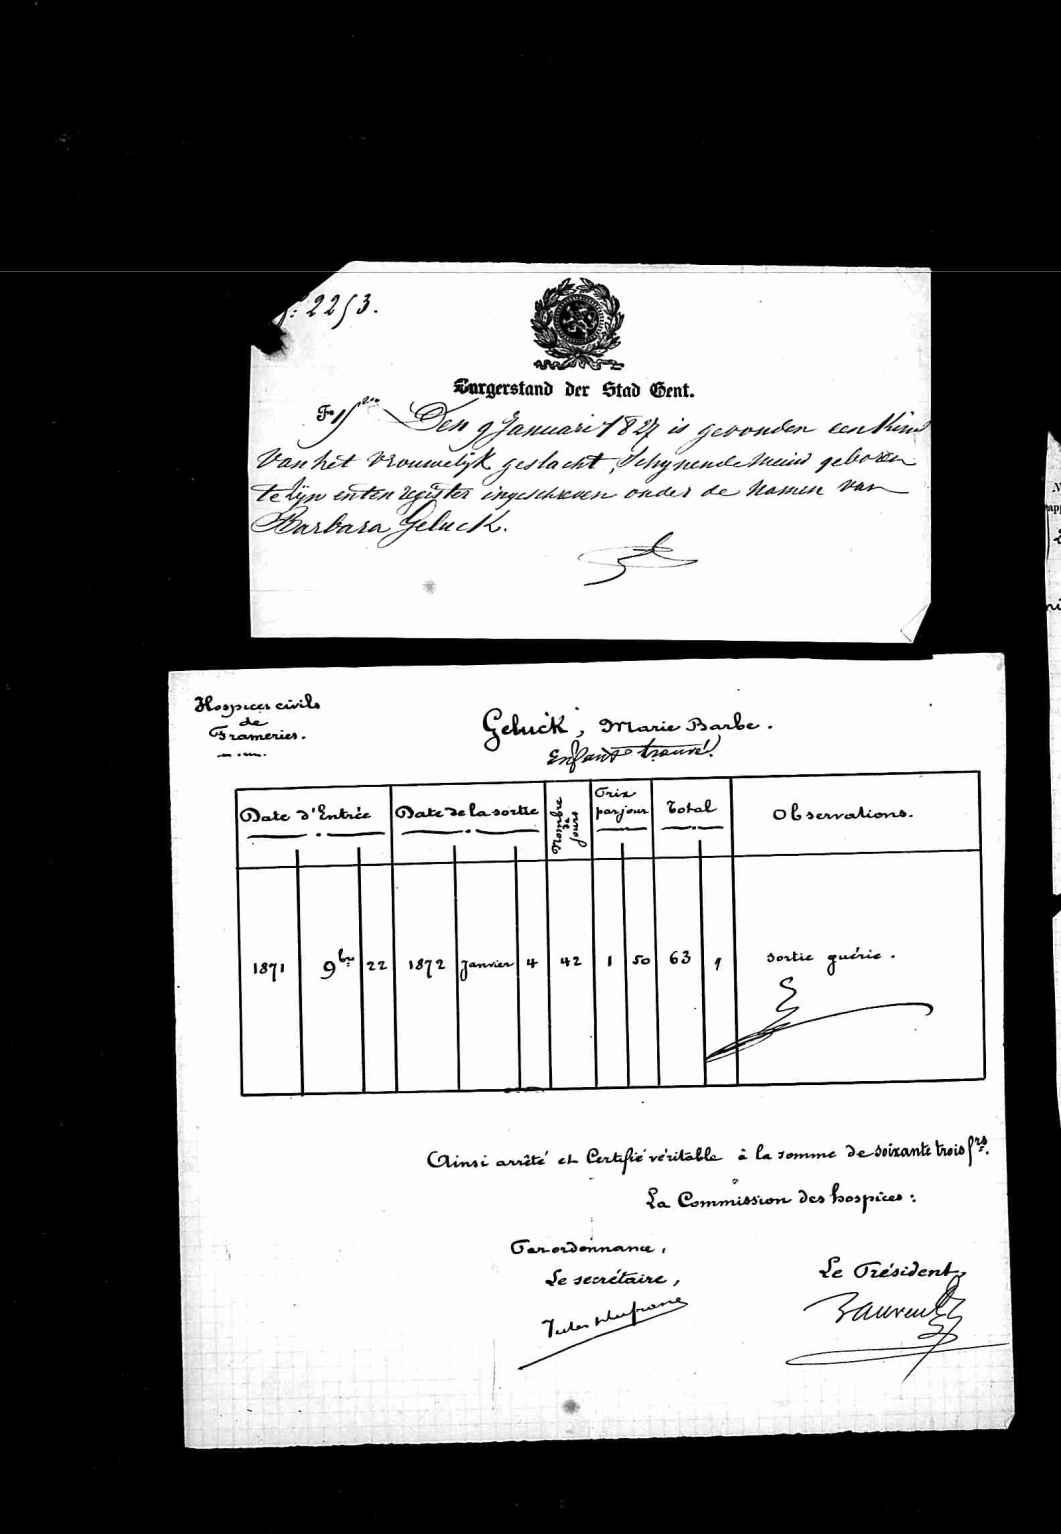 N: 2253.
Burgerstand der Stad Gent.
Den 9 Januari 1827 is gevonden een Kind
Van het vrouwelijk geslacht, schynende nieuw geboren
te zijn en ten register ingeschreven onder de namen van
Barbara Geluck.
Hospices civils
de
Frameries.
Geluck, Marie Barbe.
Enfant trouvé.
Date d'Entrée Date de la sortie Nombre de jours Prix par jour Total Observations.
1871 9bre 22 1872 Janvier 4 42 1 50 63 " sortie guérie.
Ainsi arrêté et Certifié véritable à la somme de soixante trois frs.
La Commission des hospices:
Par ordonnance,
Le secrétaire, Le Président,
Jules Dufrane